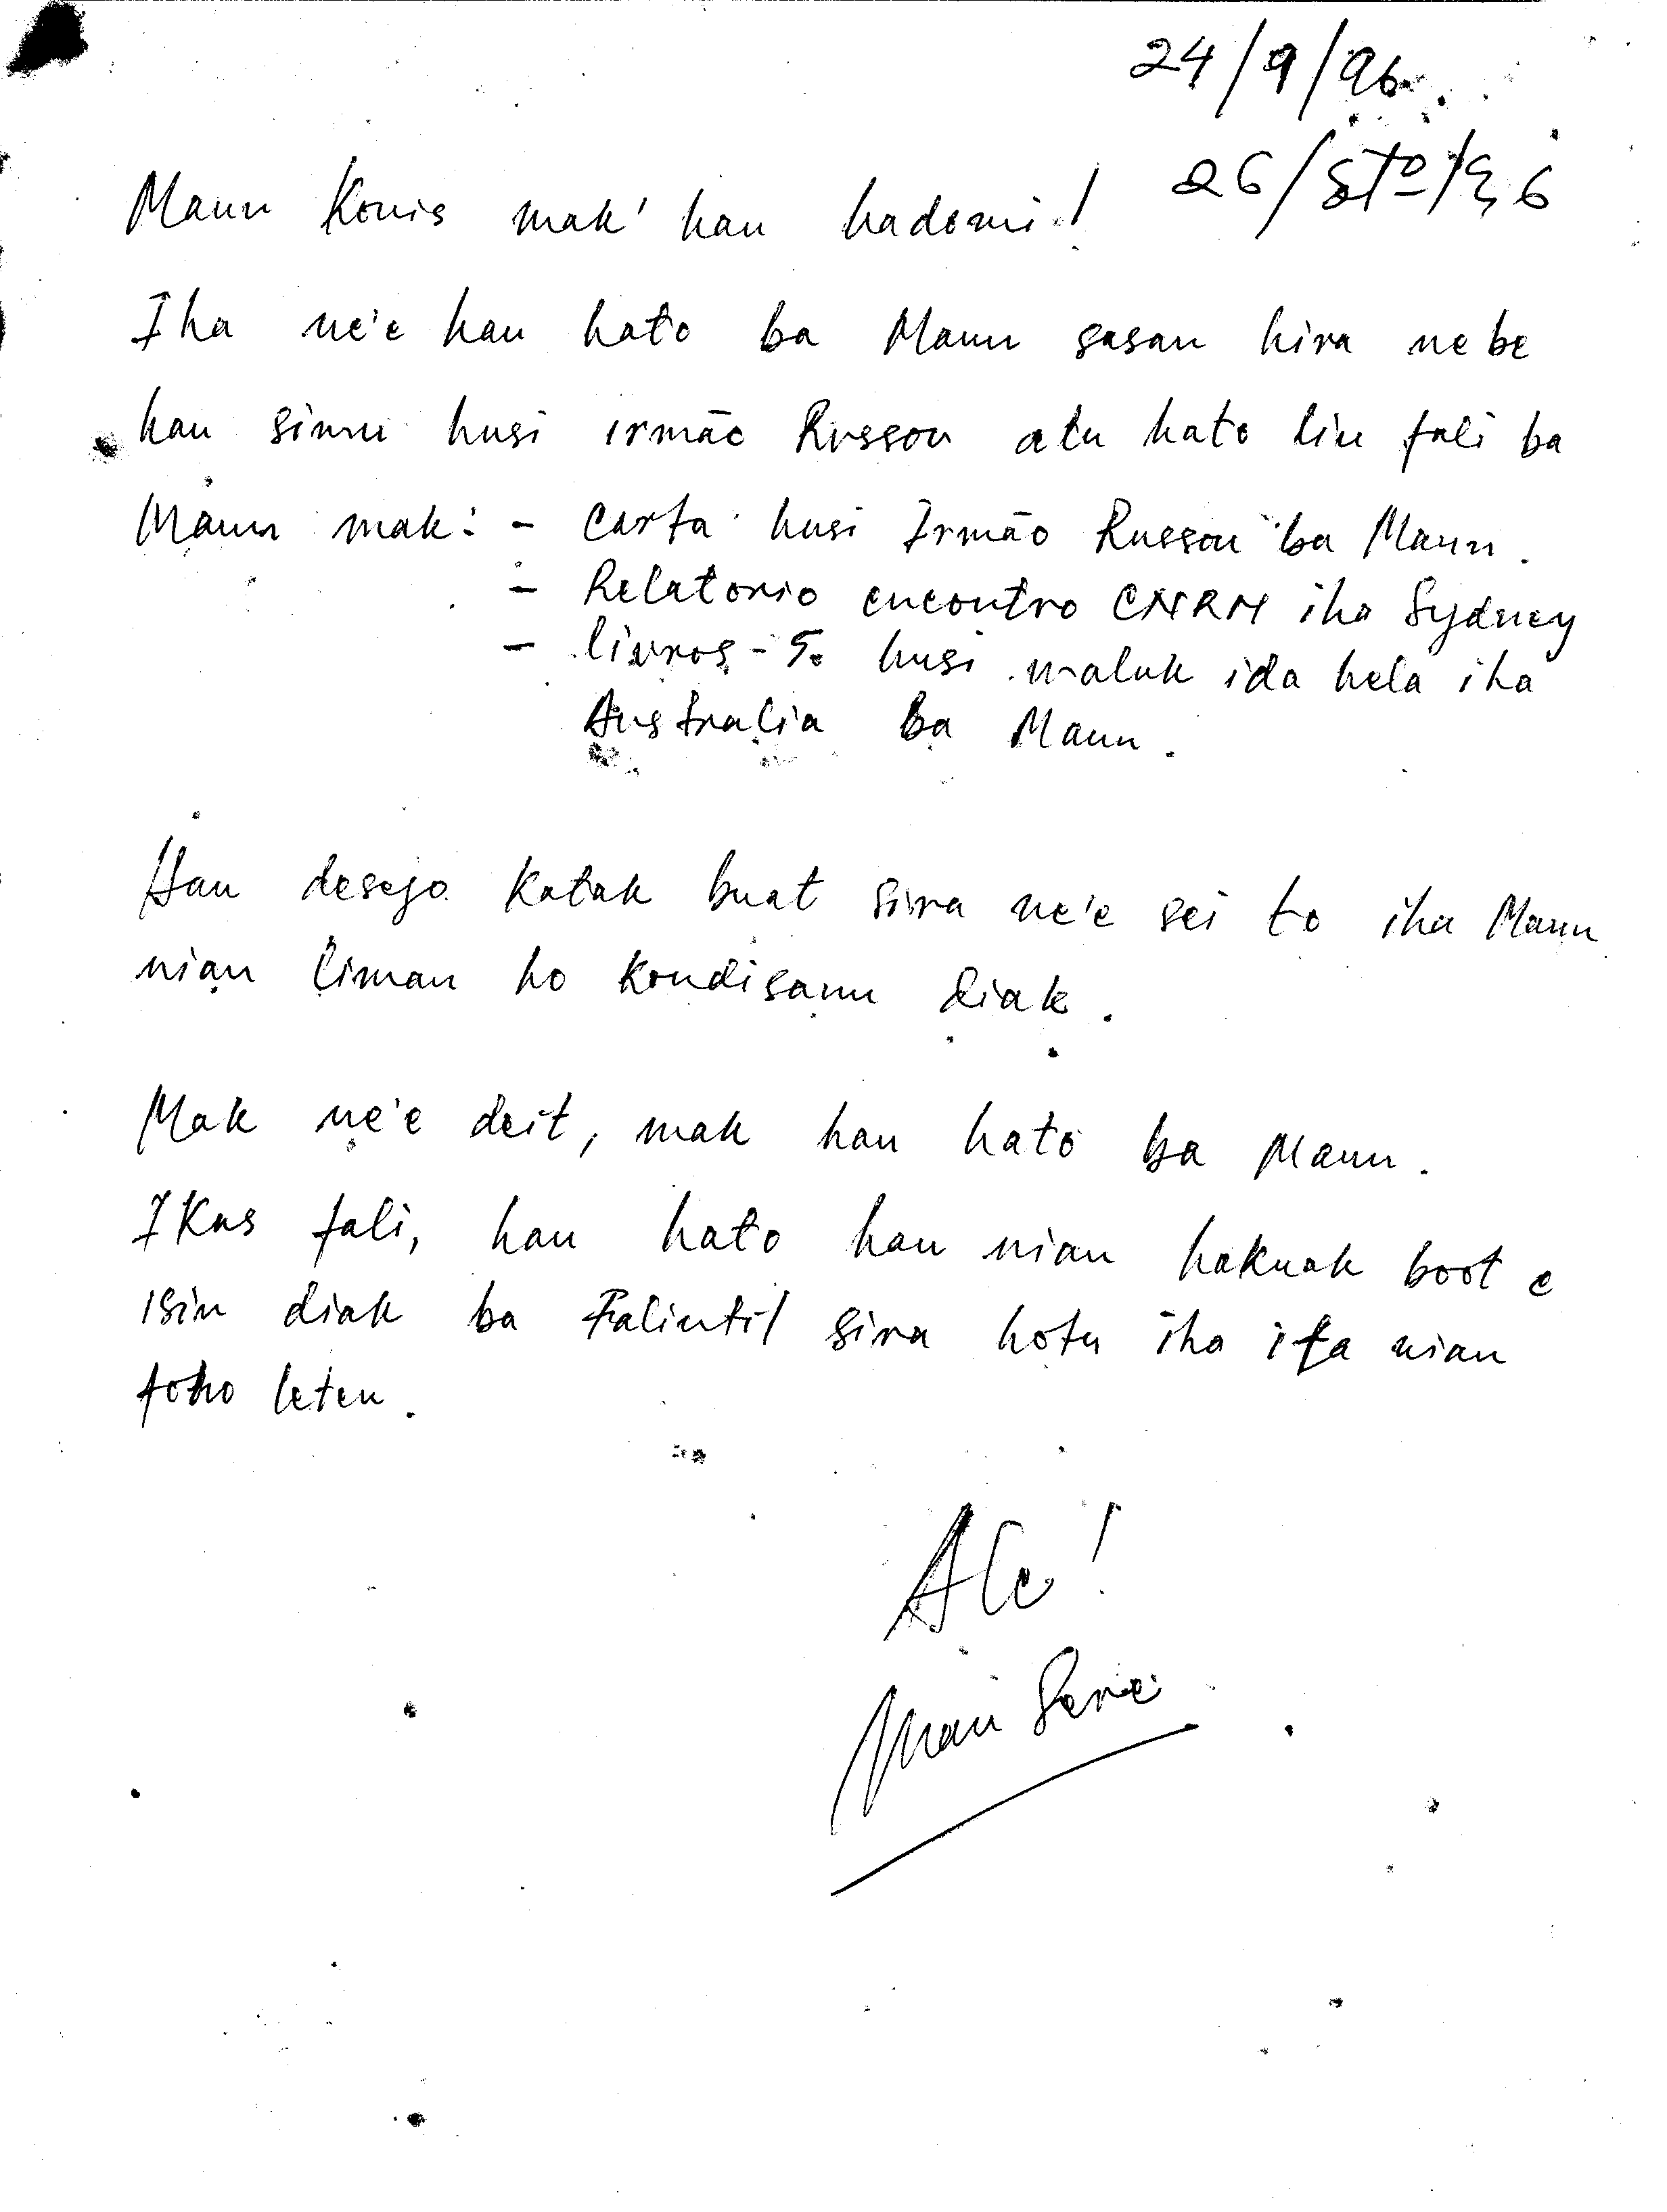 24/9/96.
26/Stº/96
Maun Konis mak' hau hadomi!
Iha ne'e hau hato ba Maun sasan hira nebe
hau simu husi irmão Russou atu hato liu fali ba
Maun mak: - Carta husi Irmão Russou ba Maun.
- Relatorio encontro CNRM iha Sydney
- livros - 5. husi maluk ida hela iha
Australia ba Maun.
Hau desejo katak buat sira ne'e sei to iha Maun
nian liman ho kondisaun diak.
Mak ne'e deit, mak hau hato ba Maun.
Ikus fali, hau hato hau nian hakuak boot e
isin diak ba Falintil sira hotu iha ita nian
foho leten.
Ale!